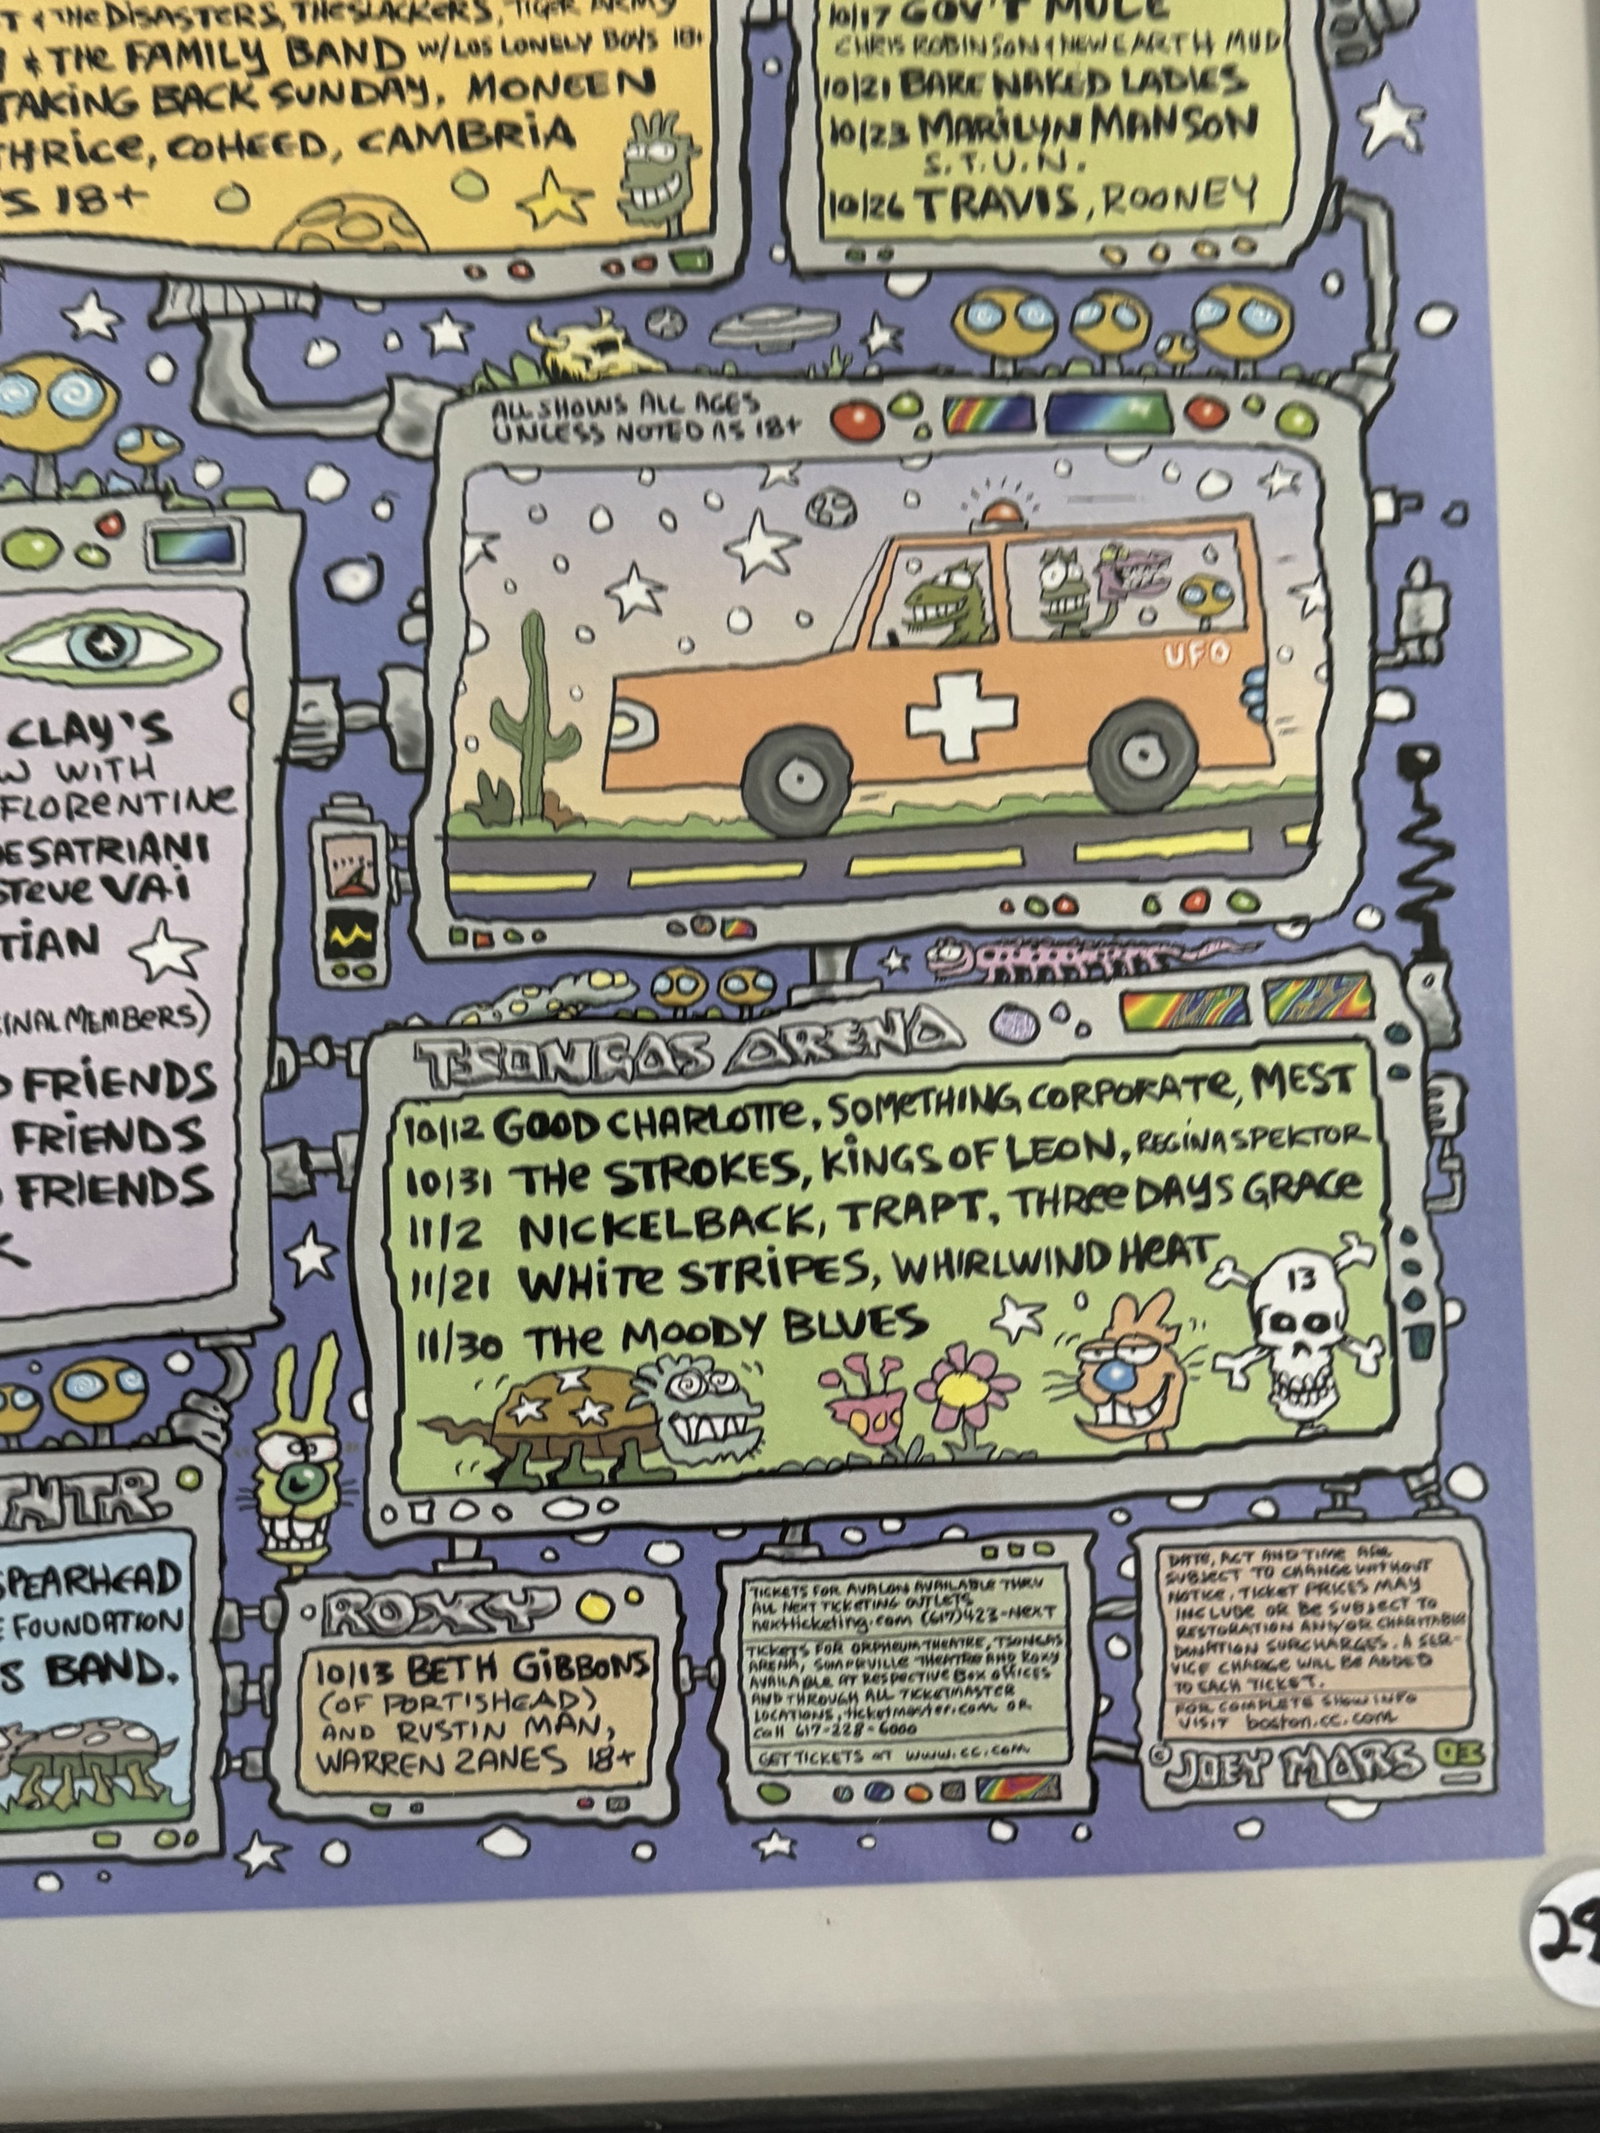 T & THE DISASTERS, THE SLACKERS, TIGER ARMY
& THE FAMILY BAND W/LOS LONELY BOYS 18+
TAKING BACK SUNDAY, MONEEN
THRICE, COHEED, CAMBRIA
S 18+
10/17 GOV'T MULE
CHRIS ROBINSON & NEW EARTH MUD
10/21 BARE NAKED LADIES
10/23 MARILYN MANSON
S.T.U.N.
10/26 TRAVIS, ROONEY
ALL SHOWS ALL AGES
UNLESS NOTED AS 18+
UFO
CLAY'S
W WITH
FLORENTINE
OE SATRIANI
STEVE VAI
TIAN
INAL MEMBERS)
D FRIENDS
FRIENDS
FRIENDS
K
TSONGAS ARENA
10/12 GOOD CHARLOTTE, SOMETHING CORPORATE, MEST
10/31 THE STROKES, KINGS OF LEON, REGINA SPEKTOR
11/2 NICKELBACK, TRAPT, THREE DAYS GRACE
11/21 WHITE STRIPES, WHIRLWIND HEAT
11/30 THE MOODY BLUES
13
NTR.
SPEARHEAD
E FOUNDATION
S BAND.
ROXY
10/13 BETH GIBBONS
(OF PORTISHEAD)
AND RUSTIN MAN,
WARREN ZANES 18+
TICKETS FOR AVALON AVAILABLE THRU
ALL NEXT TICKETING OUTLETS
nextticketing.com (617)423-NEXT
TICKETS FOR ORPHEUM THEATRE, TSONGAS
ARENA, SOMERVILLE THEATRE AND ROXY
AVAILABLE AT RESPECTIVE BOX OFFICES
AND THROUGH ALL TICKETMASTER
LOCATIONS, ticketmaster.com OR
Call 617-228-6000
GET TICKETS AT www.cc.com
DATE, ACT AND TIME ARE
SUBJECT TO CHANGE WITHOUT
NOTICE, TICKET PRICES MAY
INCLUDE OR BE SUBJECT TO
RESTORATION AND/OR CHARITABLE
DONATION SURCHARGES. A SER-
VICE CHARGE WILL BE ADDED
TO EACH TICKET.
FOR COMPLETE SHOW INFO
VISIT boston.cc.com
JOEY MARS 03